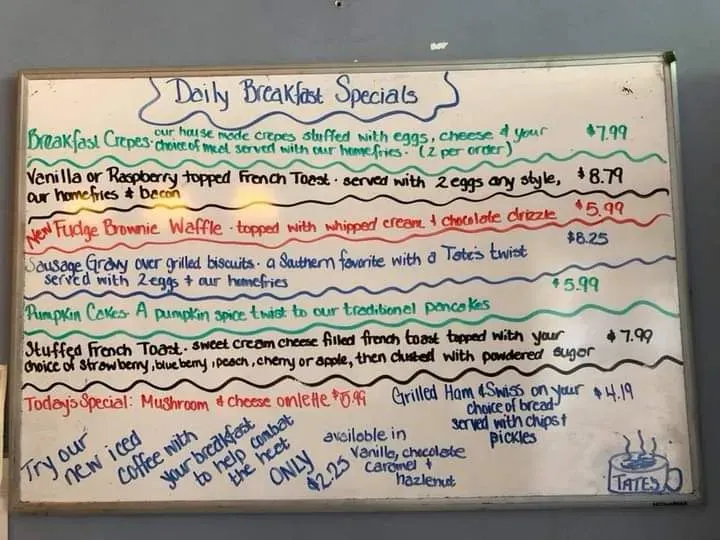 Daily Breakfast Specials
Breakfast Crepes - our house made crepes stuffed with eggs, cheese & your $7.99
choice of meat served with our homefries. (2 per order)
Vanilla or Raspberry topped French Toast - served with 2 eggs any style, $8.79
our homefries & bacon
New Fudge Brownie Waffle - topped with whipped cream & chocolate drizzle $5.99
Sausage Gravy over grilled biscuits - a Southern favorite with a Tate's twist $8.25
served with 2 eggs + our homefries
Pumpkin Cakes - A pumpkin spice twist to our traditional pancakes $5.99
Stuffed French Toast - sweet cream cheese filled french toast topped with your $7.99
choice of strawberry, blueberry, peach, cherry or apple, then dusted with powdered sugar
Today's Special: Mushroom & cheese omlette $5.99
Grilled Ham & Swiss on your $4.19
choice of bread
served with chips +
pickles
Try our
new iced
coffee with
your breakfast
to help combat
the heat
ONLY
$2.25
available in
Vanilla, chocolate
caramel +
hazlenut
TATES